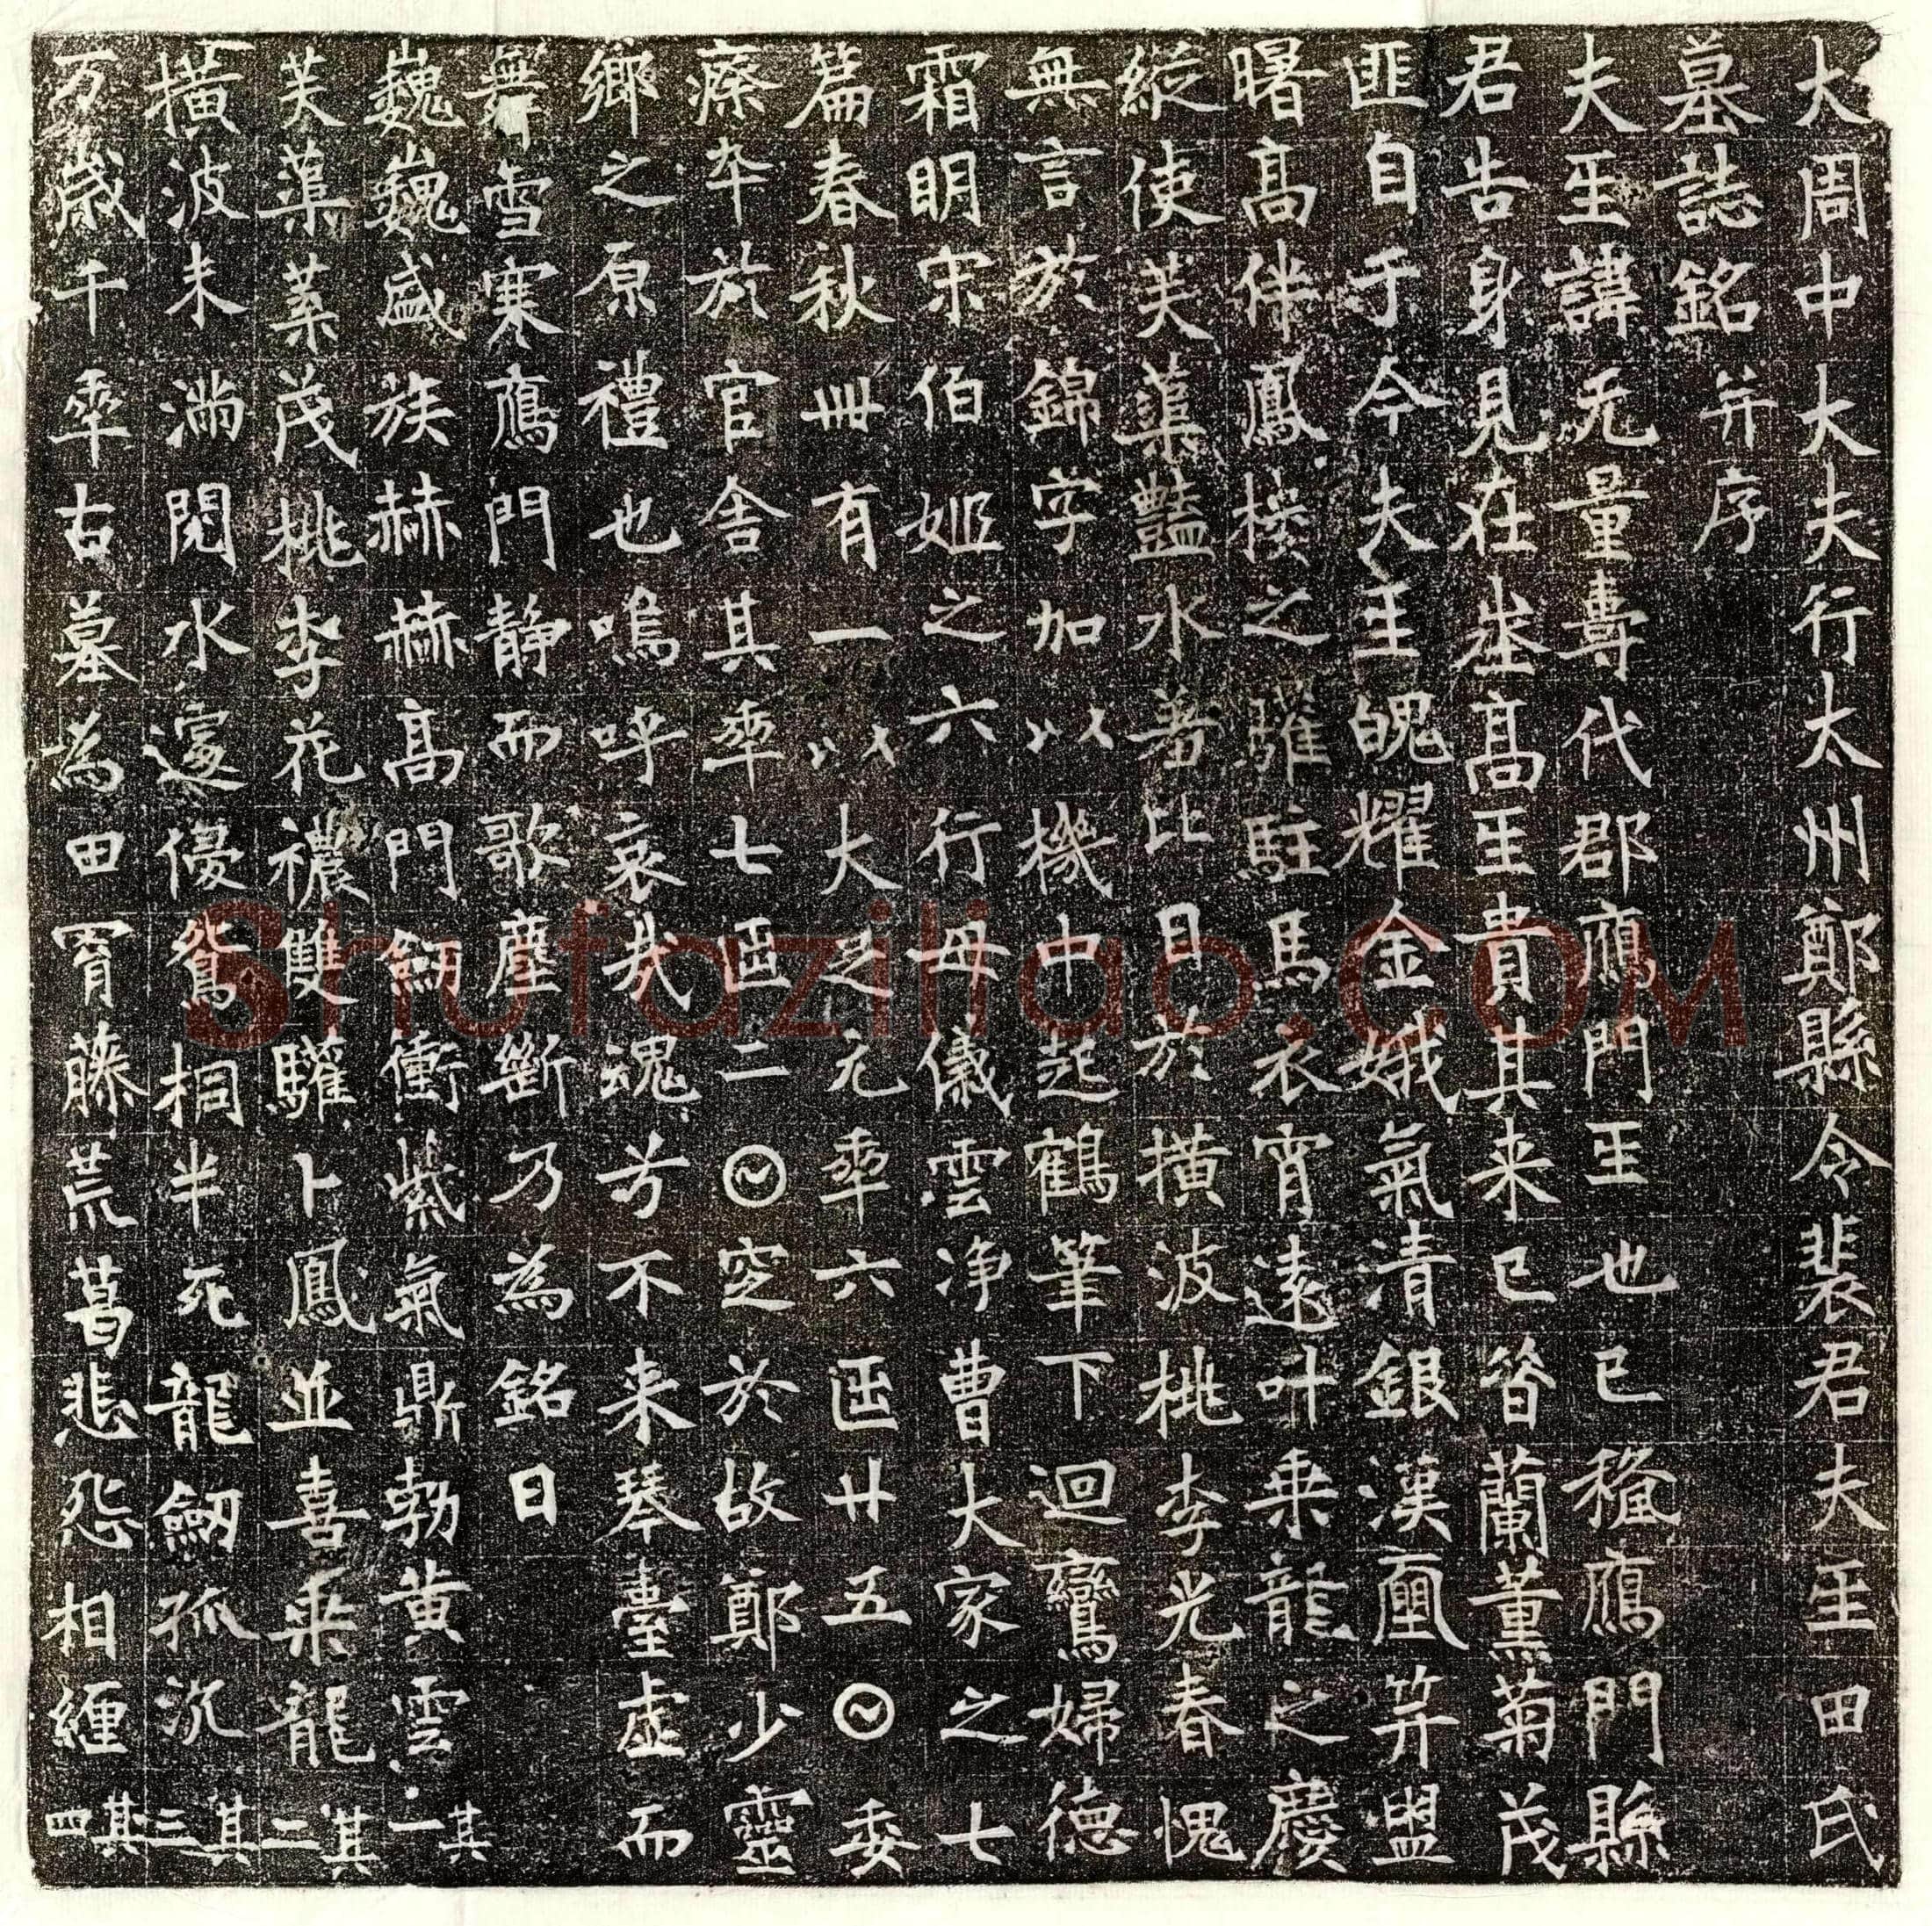 大周中大夫行太州鄭縣令裴君夫𤯔田氏
墓誌銘并序
夫𤯔諱无量壽代郡鴈門𤯔也已𥠢鴈門縣
君告身見在埊高𤯔貴其来已昝蘭薰菊茂
匪自于今夫𤯔魄耀金娥氣清銀漢𡔈笄盥
曙高伴鳳棲之驩駐馬衣宵遠叶乘龍之慶
縱使芙蕖豔水者比目於橫波桃李光春愧
無言於錦字加以機中起鶴筆下迴鸞婦德
霜明宋伯姬之六行母儀雲淨曹大家之七
篇春秋卌有一以大足元𠡦六𠥱廿五𡆠委
瘵卒於官舍其𠡦七𠥱二𡆠窆於故鄭少靈
鄉之原禮也嗚呼哀哉魂兮不来琴臺虛而
舞雪寒鴈門靜而歌塵斷乃為銘曰
巍巍盛族赫赫高門劒衝紫氣鼎勒黃雲其一
芙蕖葉茂桃李花穠雙驩卜鳳並喜乘龍其二
橫波未滿閱水遽優鴛桐半死龍劒孤沉其三
万歲千𠡦古墓為田罥藤荒葛悲怨相纏其四
Shufaziliao.COM